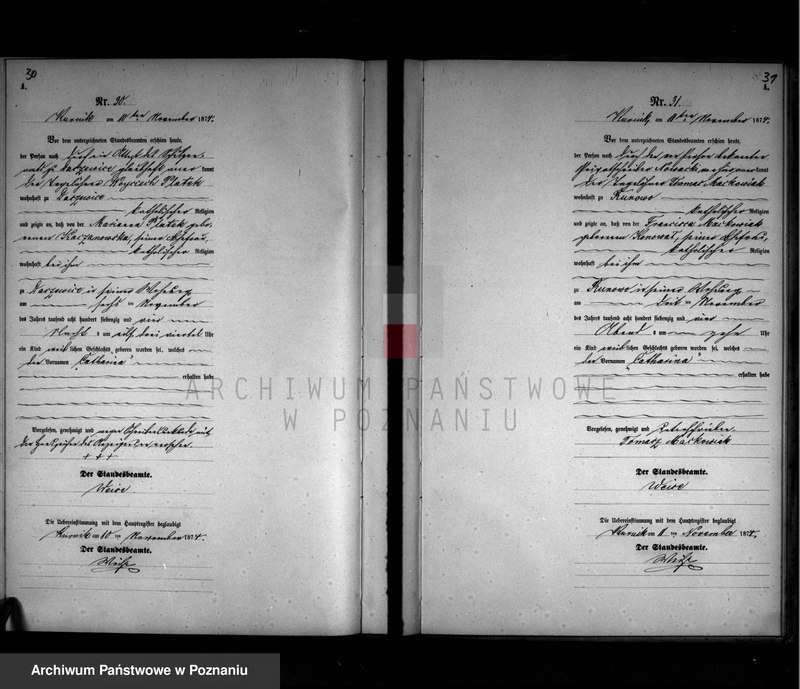 30
A.
Nr. 30.
Kurnik am 10ten November 1874.
Vor dem unterzeichneten Standesbeamten erschien heute,
der Person nach durch ein Attest des
kannt
der Tagelöhner Woyciech Płatek
wohnhaft zu Darzewice
katholischer Religion
und zeigte an, daß von der Marianna Płatek gebo-
renen Kaczanowska, seiner Ehefrau,
katholischer Religion
wohnhaft bei ihm
zu Darzewice in seiner Wohnung
am sechs ten November
des Jahres tausend acht hundert siebenzig und vier
Nachts um acht drei viertel Uhr
ein Kind weiblichen Geschlechts geboren worden sei, welches
den Vornamen "Catharina"
erhalten habe
Vorgelesen, genehmigt und wegen
+++
Der Standesbeamte.
Weise
Die Uebereinstimmung mit dem Hauptregister beglaubigt
Kurnik am 10 ten November 1874.
Der Standesbeamte.
Weise
31
A.
Nr. 31.
Kurnik am 11ten November 1874.
Vor dem unterzeichneten Standesbeamten erschien heute,
der Person nach durch den
kannt
der Tagelöhner Thomas Maćkowiak
wohnhaft zu Runowo
katholischer Religion
und zeigte an, daß von der Francisca Maćkowiak
geborenen seiner Ehefrau,
katholischer Religion
wohnhaft bei ihm
zu Runowo in seiner Wohnung
am ten November
des Jahres tausend acht hundert siebenzig und vier
Abend um zehn Uhr
ein Kind weiblichen Geschlechts geboren worden sei, welches
den Vornamen "Catharina"
erhalten habe
Vorgelesen, genehmigt und unterschrieben
Tomasz Maćkowiak
Der Standesbeamte.
Weise
Die Uebereinstimmung mit dem Hauptregister beglaubigt
Kurnik am 11 ten November 1874.
Der Standesbeamte.
Weise
ARCHIWUM PAŃSTWOWE
W POZNANIU
Archiwum Państwowe w Poznaniu